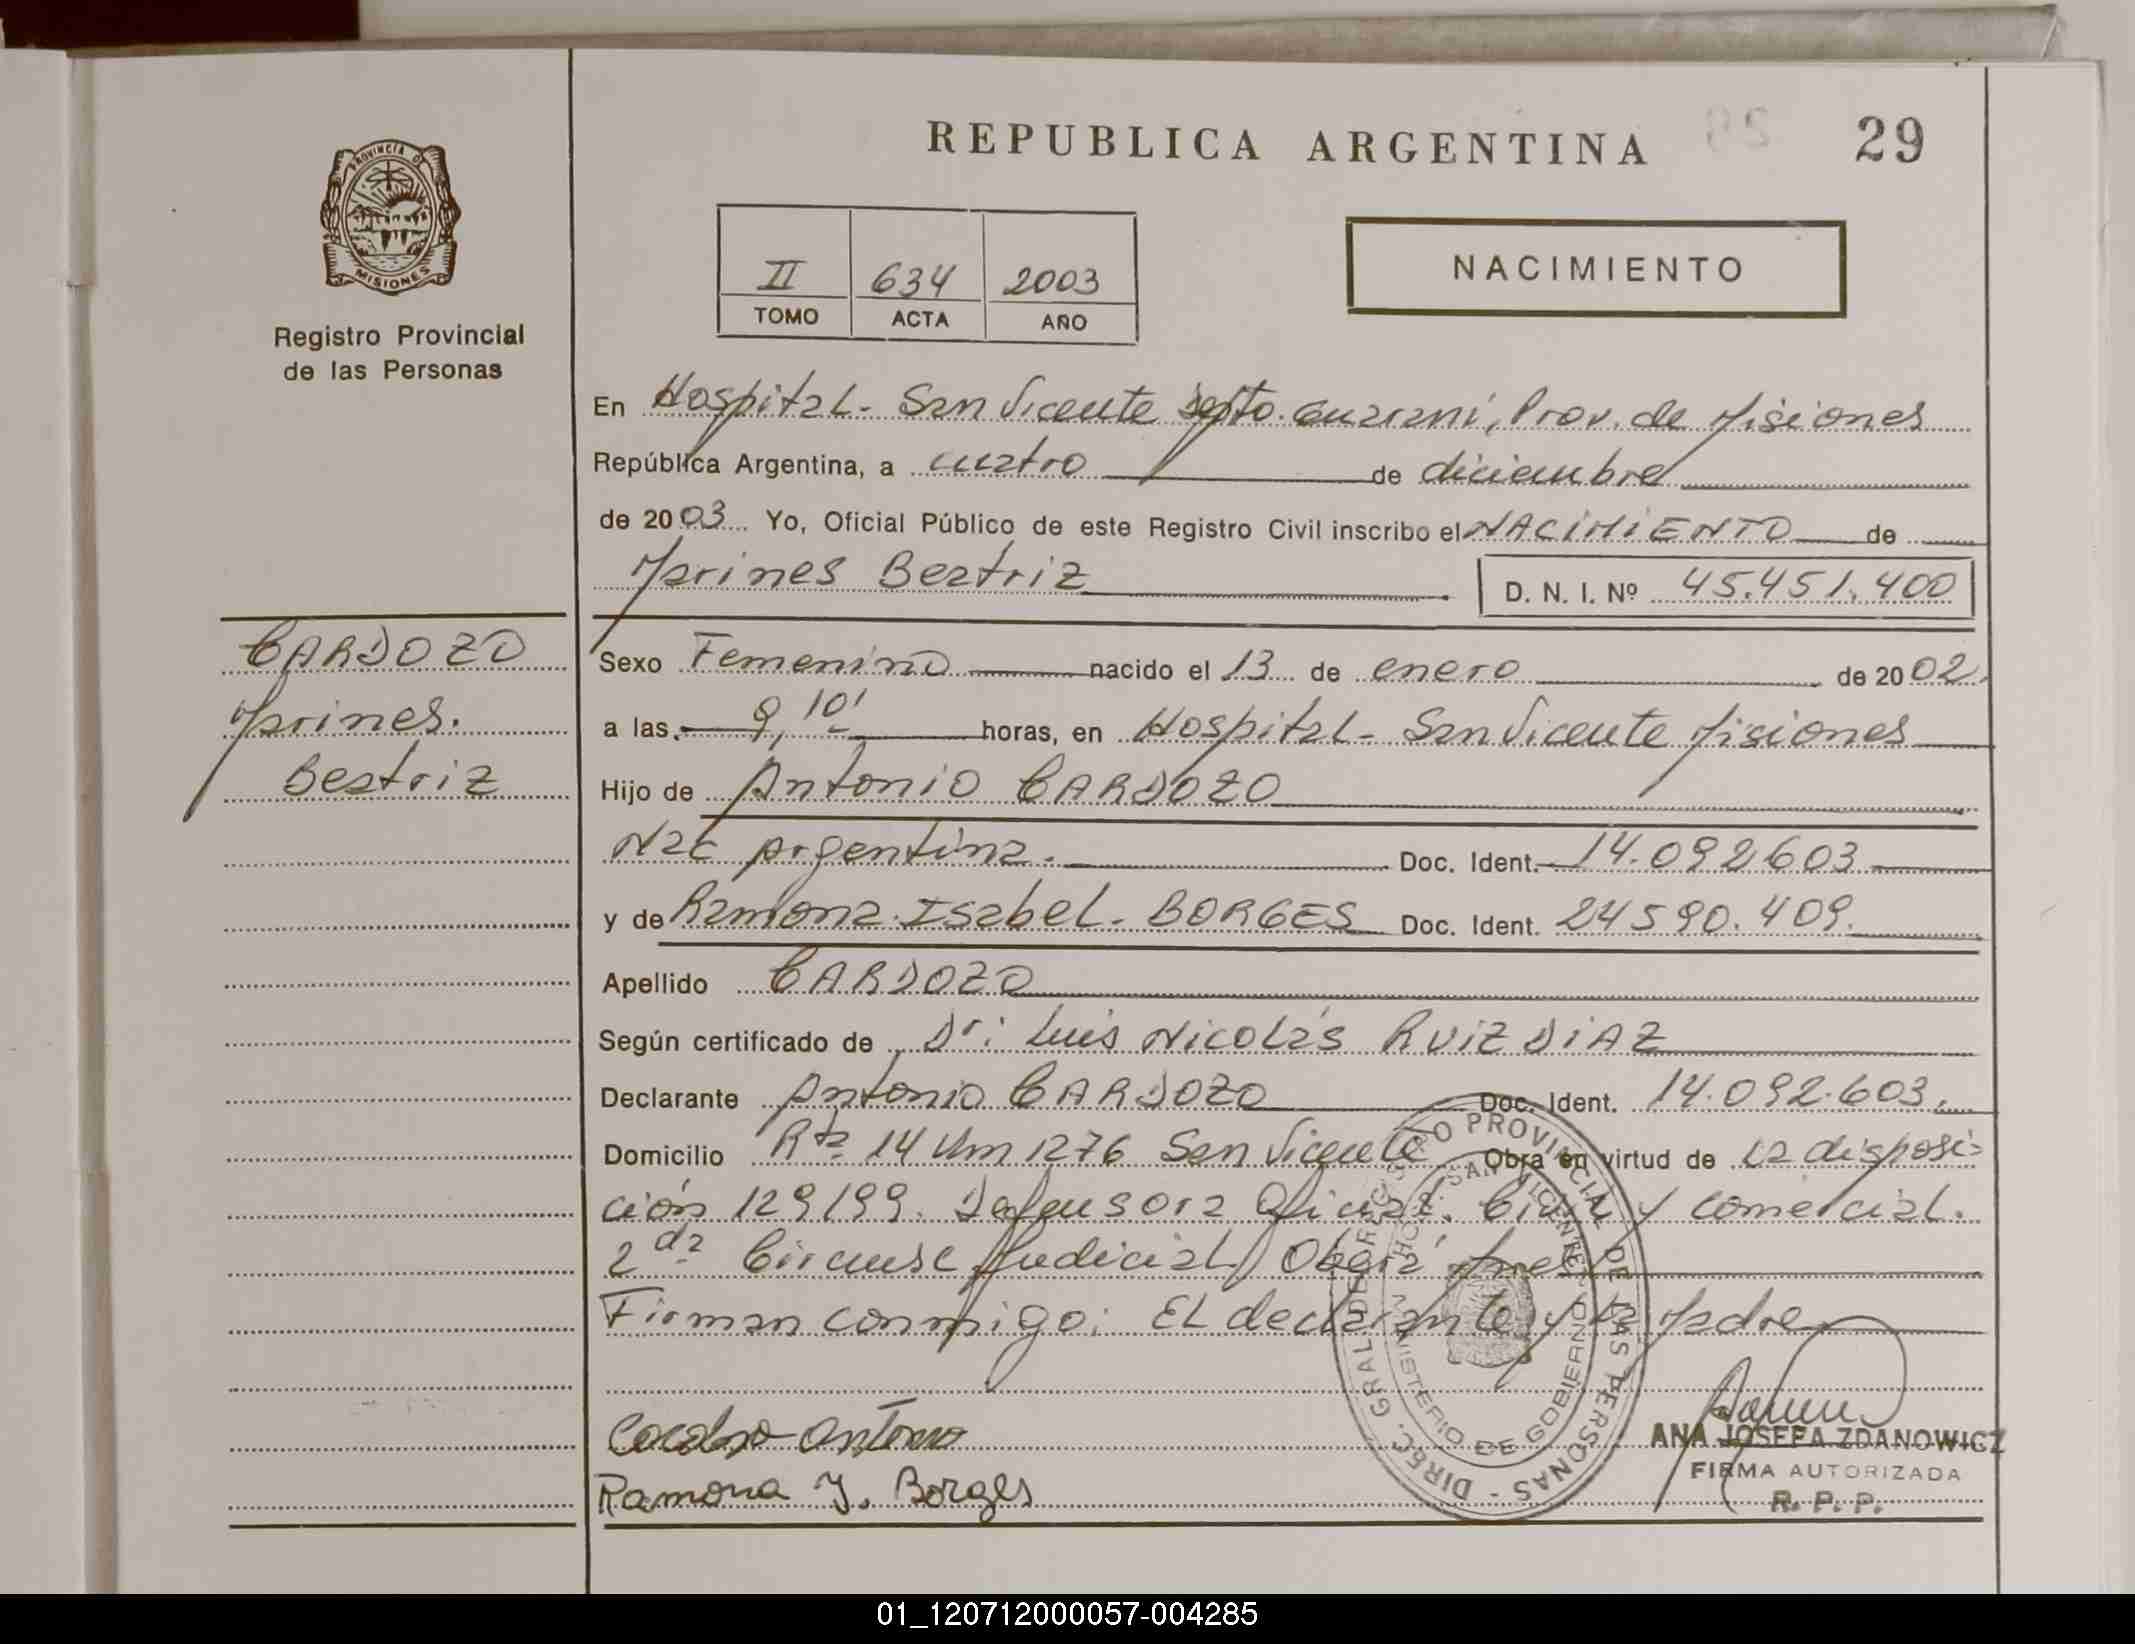 PROVINCIA DE
MISIONES
Registro Provincial
de las Personas
REPUBLICA ARGENTINA
29
II 634 2003
TOMO ACTA AÑO
NACIMIENTO
En Hospital - San Vicente Dpto. Guarani, Prov. de Misiones
República Argentina, a cuatro de diciembre
de 2003 Yo, Oficial Público de este Registro Civil inscribo el NACIMIENTO de
Marines Beatriz D. N. I. Nº 45.451.400
CARDOZO
Marines.
Beatriz
Sexo Femenino nacido el 13 de enero de 2002.
a las 9,10' horas, en Hospital - San Vicente Misiones
Hijo de Antonio CARDOZO
Nac Argentina. Doc. Ident. 14.092603
y de Ramona Isabel - BORGES Doc. Ident. 24590.409.
Apellido CARDOZO
Según certificado de Dr: Luis Nicolás RUIZ DIAZ
Declarante Antonio CARDOZO Doc. Ident. 14.092.603.
Domicilio Rta 14 Km 1276 San Vicente Obra en virtud de la disposi-
ción 129/99. Defensora Oficial. Civil y Comercial.
2da Circunsc Judicial Obera
Firman conmigo: El declarante y la Madre
Cardozo Antonio
Ramona Y. Borges
DIREC. GRAL. DEL REGISTRO PROVINCIAL DE LAS PERSONAS -
HOSP. SAN VICENTE
MINISTERIO DE GOBIERNO
ANA JOSEFA ZDANOWICZ
FIRMA AUTORIZADA
R. P. P.
01_120712000057-004285